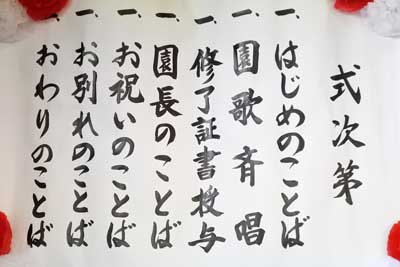 式次第
一、はじめのことば
一、園歌斉唱
一、修了証書授与
一、園長のことば
一、お祝いのことば
一、お別れのことば
一、おわりのことば